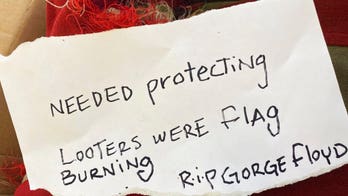 NEEDED protecting
LOOTERS WERE FlAg
BURNING
R.i.p GORGE Floyd